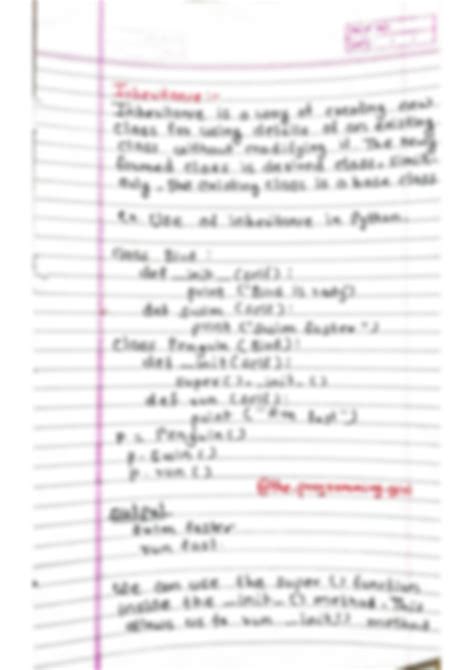 Inheritance :-
Inheritance is a way of creating new
class for using details of an existing
class without modifying it. The newly
formed class is derived class. Simil-
rly, the existing class is a base class
Use of inheritance in Python.
class Bird :
def __init__(self):
print ("Bird is ready)
def swim (self):
print ("Swim faster")
class Penguin (Bird):
def __init(self):
super().__init__()
def run (self):
print (" fast")
p = Penguin()
p. swim()
p. run ()
@the.programming.girl
output
Swim faster
run fast.
We can use the super () function
inside the __init__() method. This
allows us to run __init() method